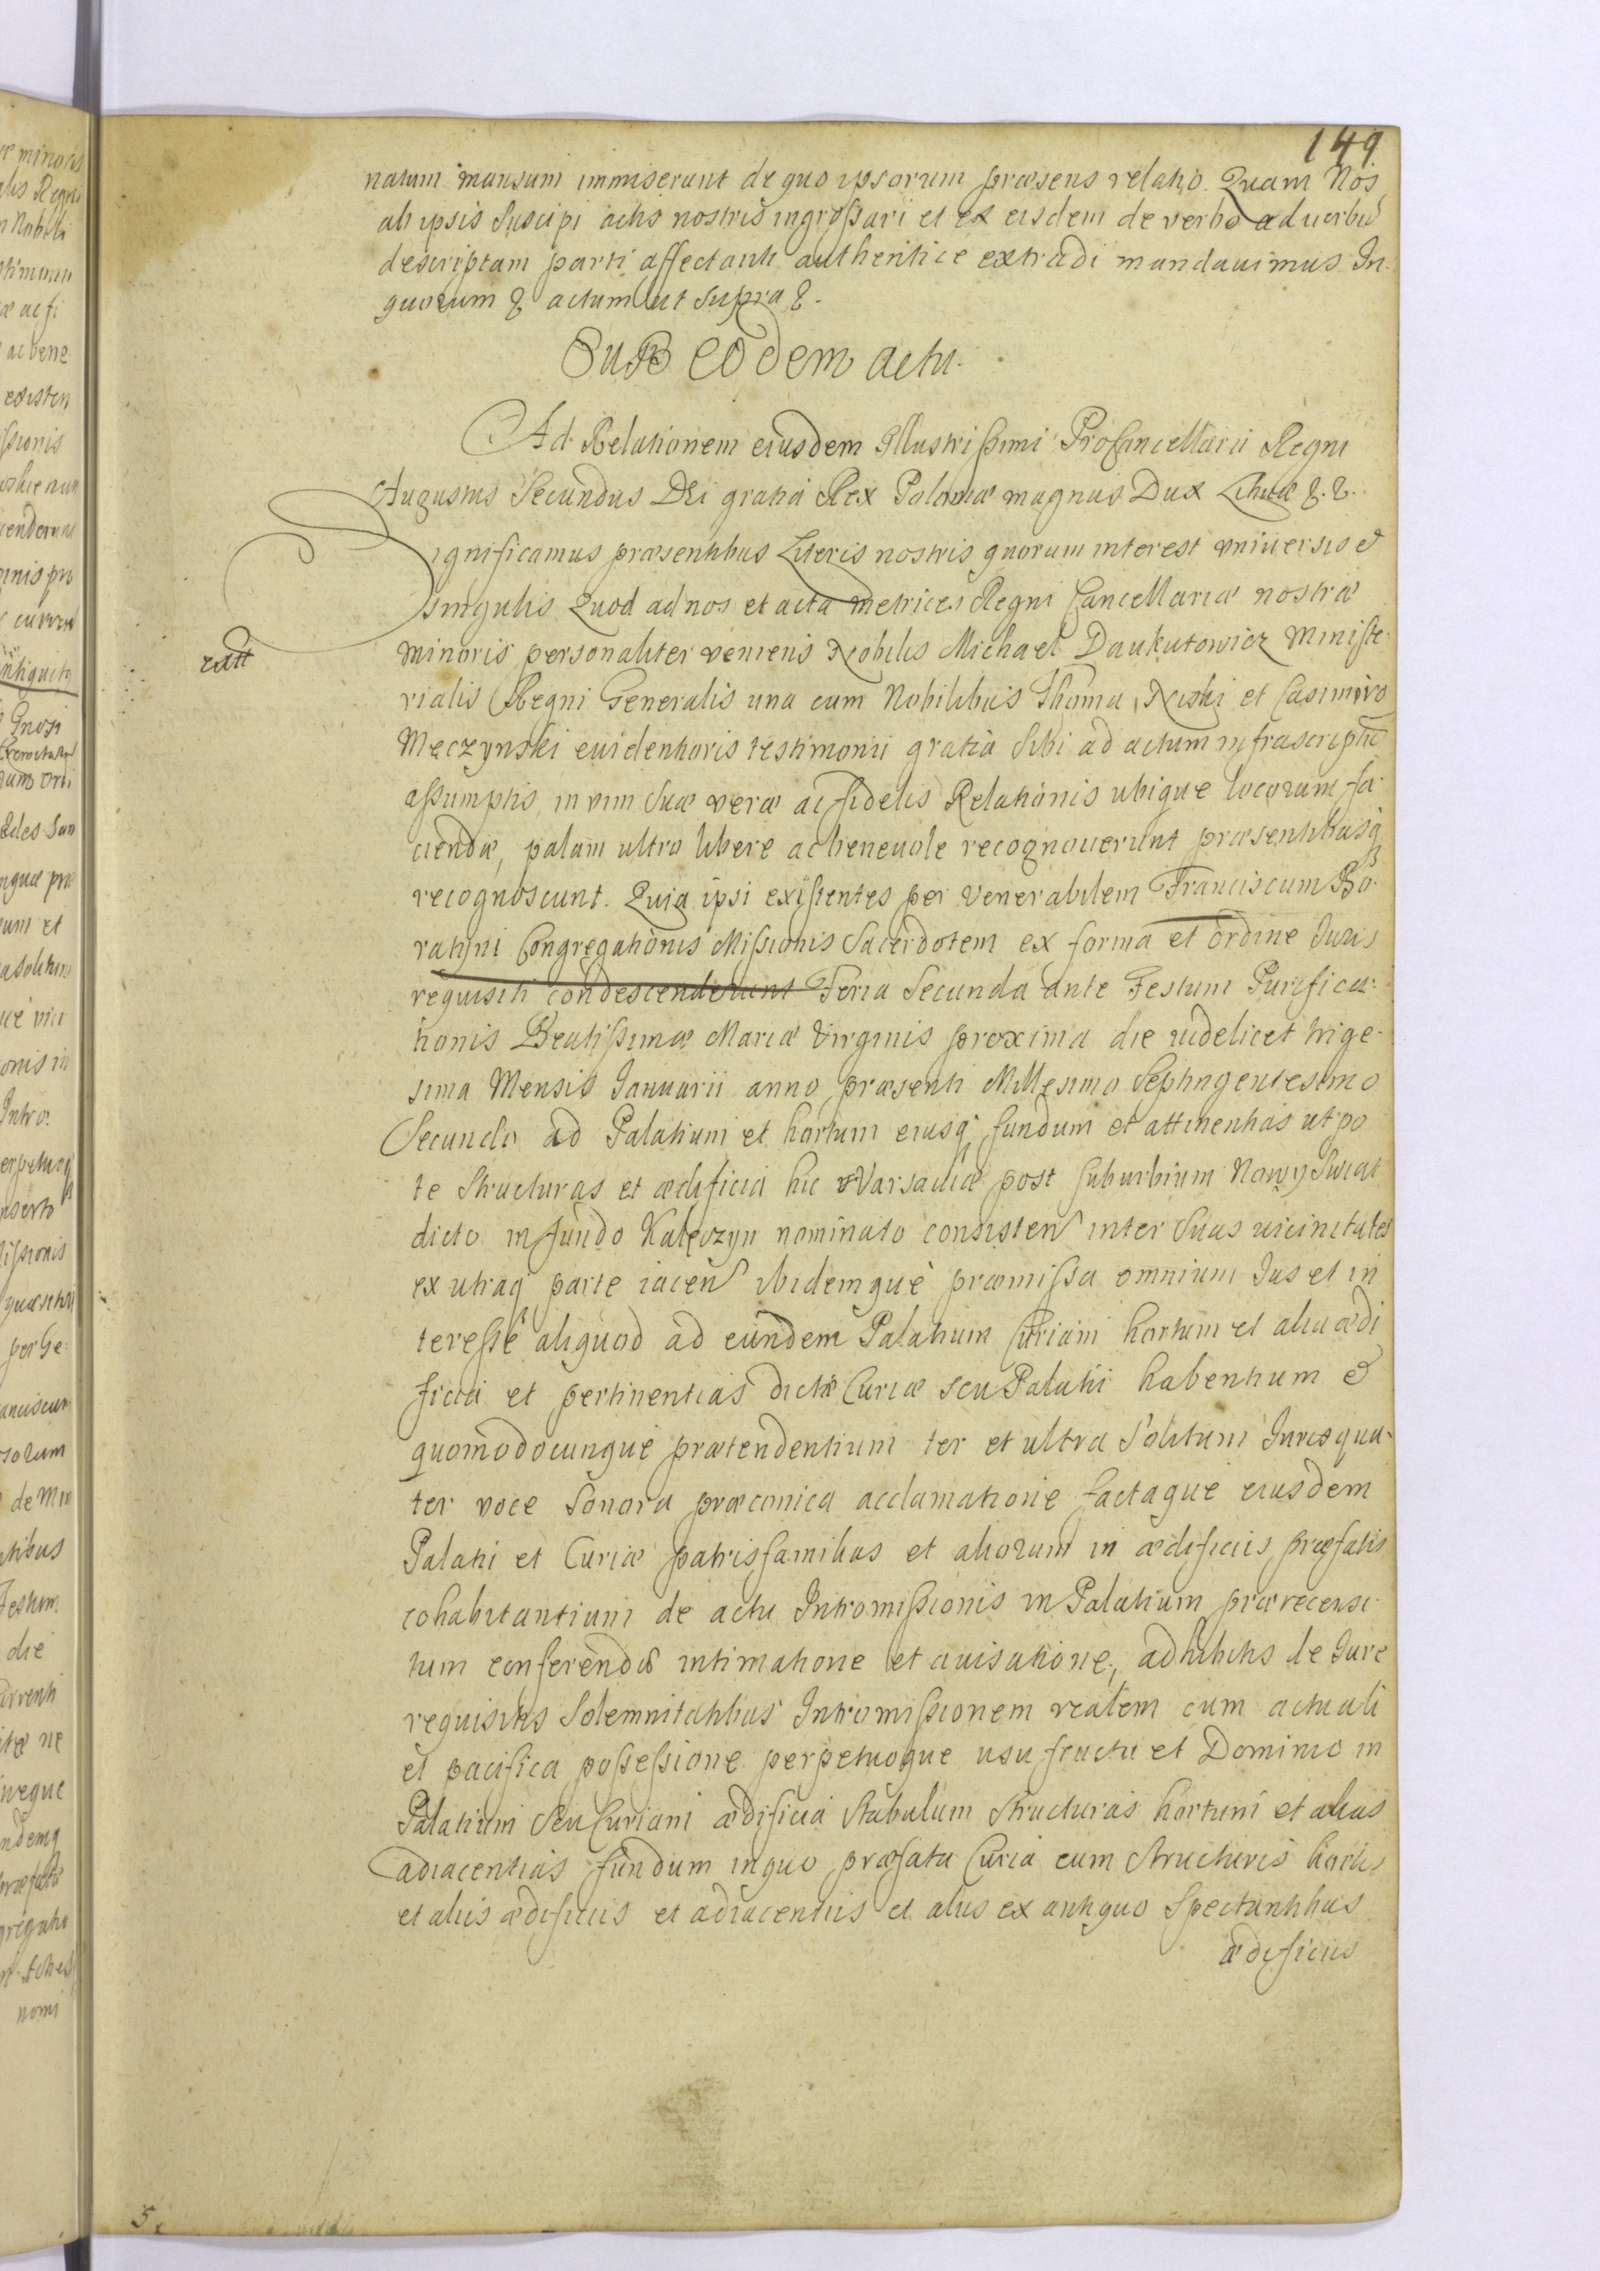 149.
natum mansum immiserunt de quo ipsorum præsens relatio. Quam Nos
ab ipsis suscipi actis nostris ingrossari et ex eisdem de verbo ad verbũ
descriptam parti affectanti authentice extradi mandavimus In
quorum & actum ut supra &.
Sub eodem actu.
Ad Relationem eiusdem Illustrissimi ProCancellarii Regni
Augustus Secundus Dei gratia Rex Poloniæ magnus Dux Lithuæ &. &.
Significamus præsentibus Literis nostris quorum interest vniversis et
singulis Quod ad nos et acta metrices Regni Cancellariæ nostræ
minoris personaliter veniens Nobilis Michael Daukutowicz Ministe-
rialis Regni Generalis una cum Nobilibus Thoma Niski et Casimiro
Męczynski evidentioris testimonii gratia sibi ad actum infrascriptũ
assumptis, in vim suæ veræ ac fidelis Relationis ubique locorum fa-
ciendæ, palam ultro libere ac benevole recognoverunt præsentibusq
recognoscunt. Quia ipsi existentes per Venerabilem Franciscum Bo-
ratyni Congregationis Missionis Sacerdotem ex forma et ordine Iuris
requisiti condescenderunt Feria Secunda ante Festum Purifica-
tionis Beatissimæ Mariæ Virginis proxima die videlicet trige-
sima Mensis Ianuarii anno præsenti Millesimo Septingentesimo
Secundo ad Palatium et hortum eiusq fundum et attinentias utpo
te structuras et ædificia hic Varsaviæ post suburbium Nowy Swiat
dicto in fundo Kałęczyn nominato consisten inter suas vicinitates
ex utraq parte iacen ibidemque præmissa omnium Ius et in
teresse aliquod ad eundem Palatium Curiam hortum et alia ædi
ficia et pertinentias dictæ Curiæ seu Palatii habentium et
quomodocunque prætendentium ter et ultra solitum Iuris qua-
ter voce sonora præconica acclamatione factaque eiusdem
Palatii et Curiæ patrisfamilias et aliorum in ædificiis præfatis
cohabitantium de actu Intromissionis in Palatium prærecensi
tum conferendæ intimatione et avisatione, adhibitis de Iure
requisitis Solemnitatibus Intromissionem realem cum actuali
et pacifica possessione perpetuoque usufructu et Dominio in
Palatium seu Curiam ædificia stabulum structuras hortum et alias
adiacentias fundum in quo præfata Curia cum structuris hortis
et aliis ædificiis et adiacentiis et aliis ex antiquo spectantibus
ædificiis